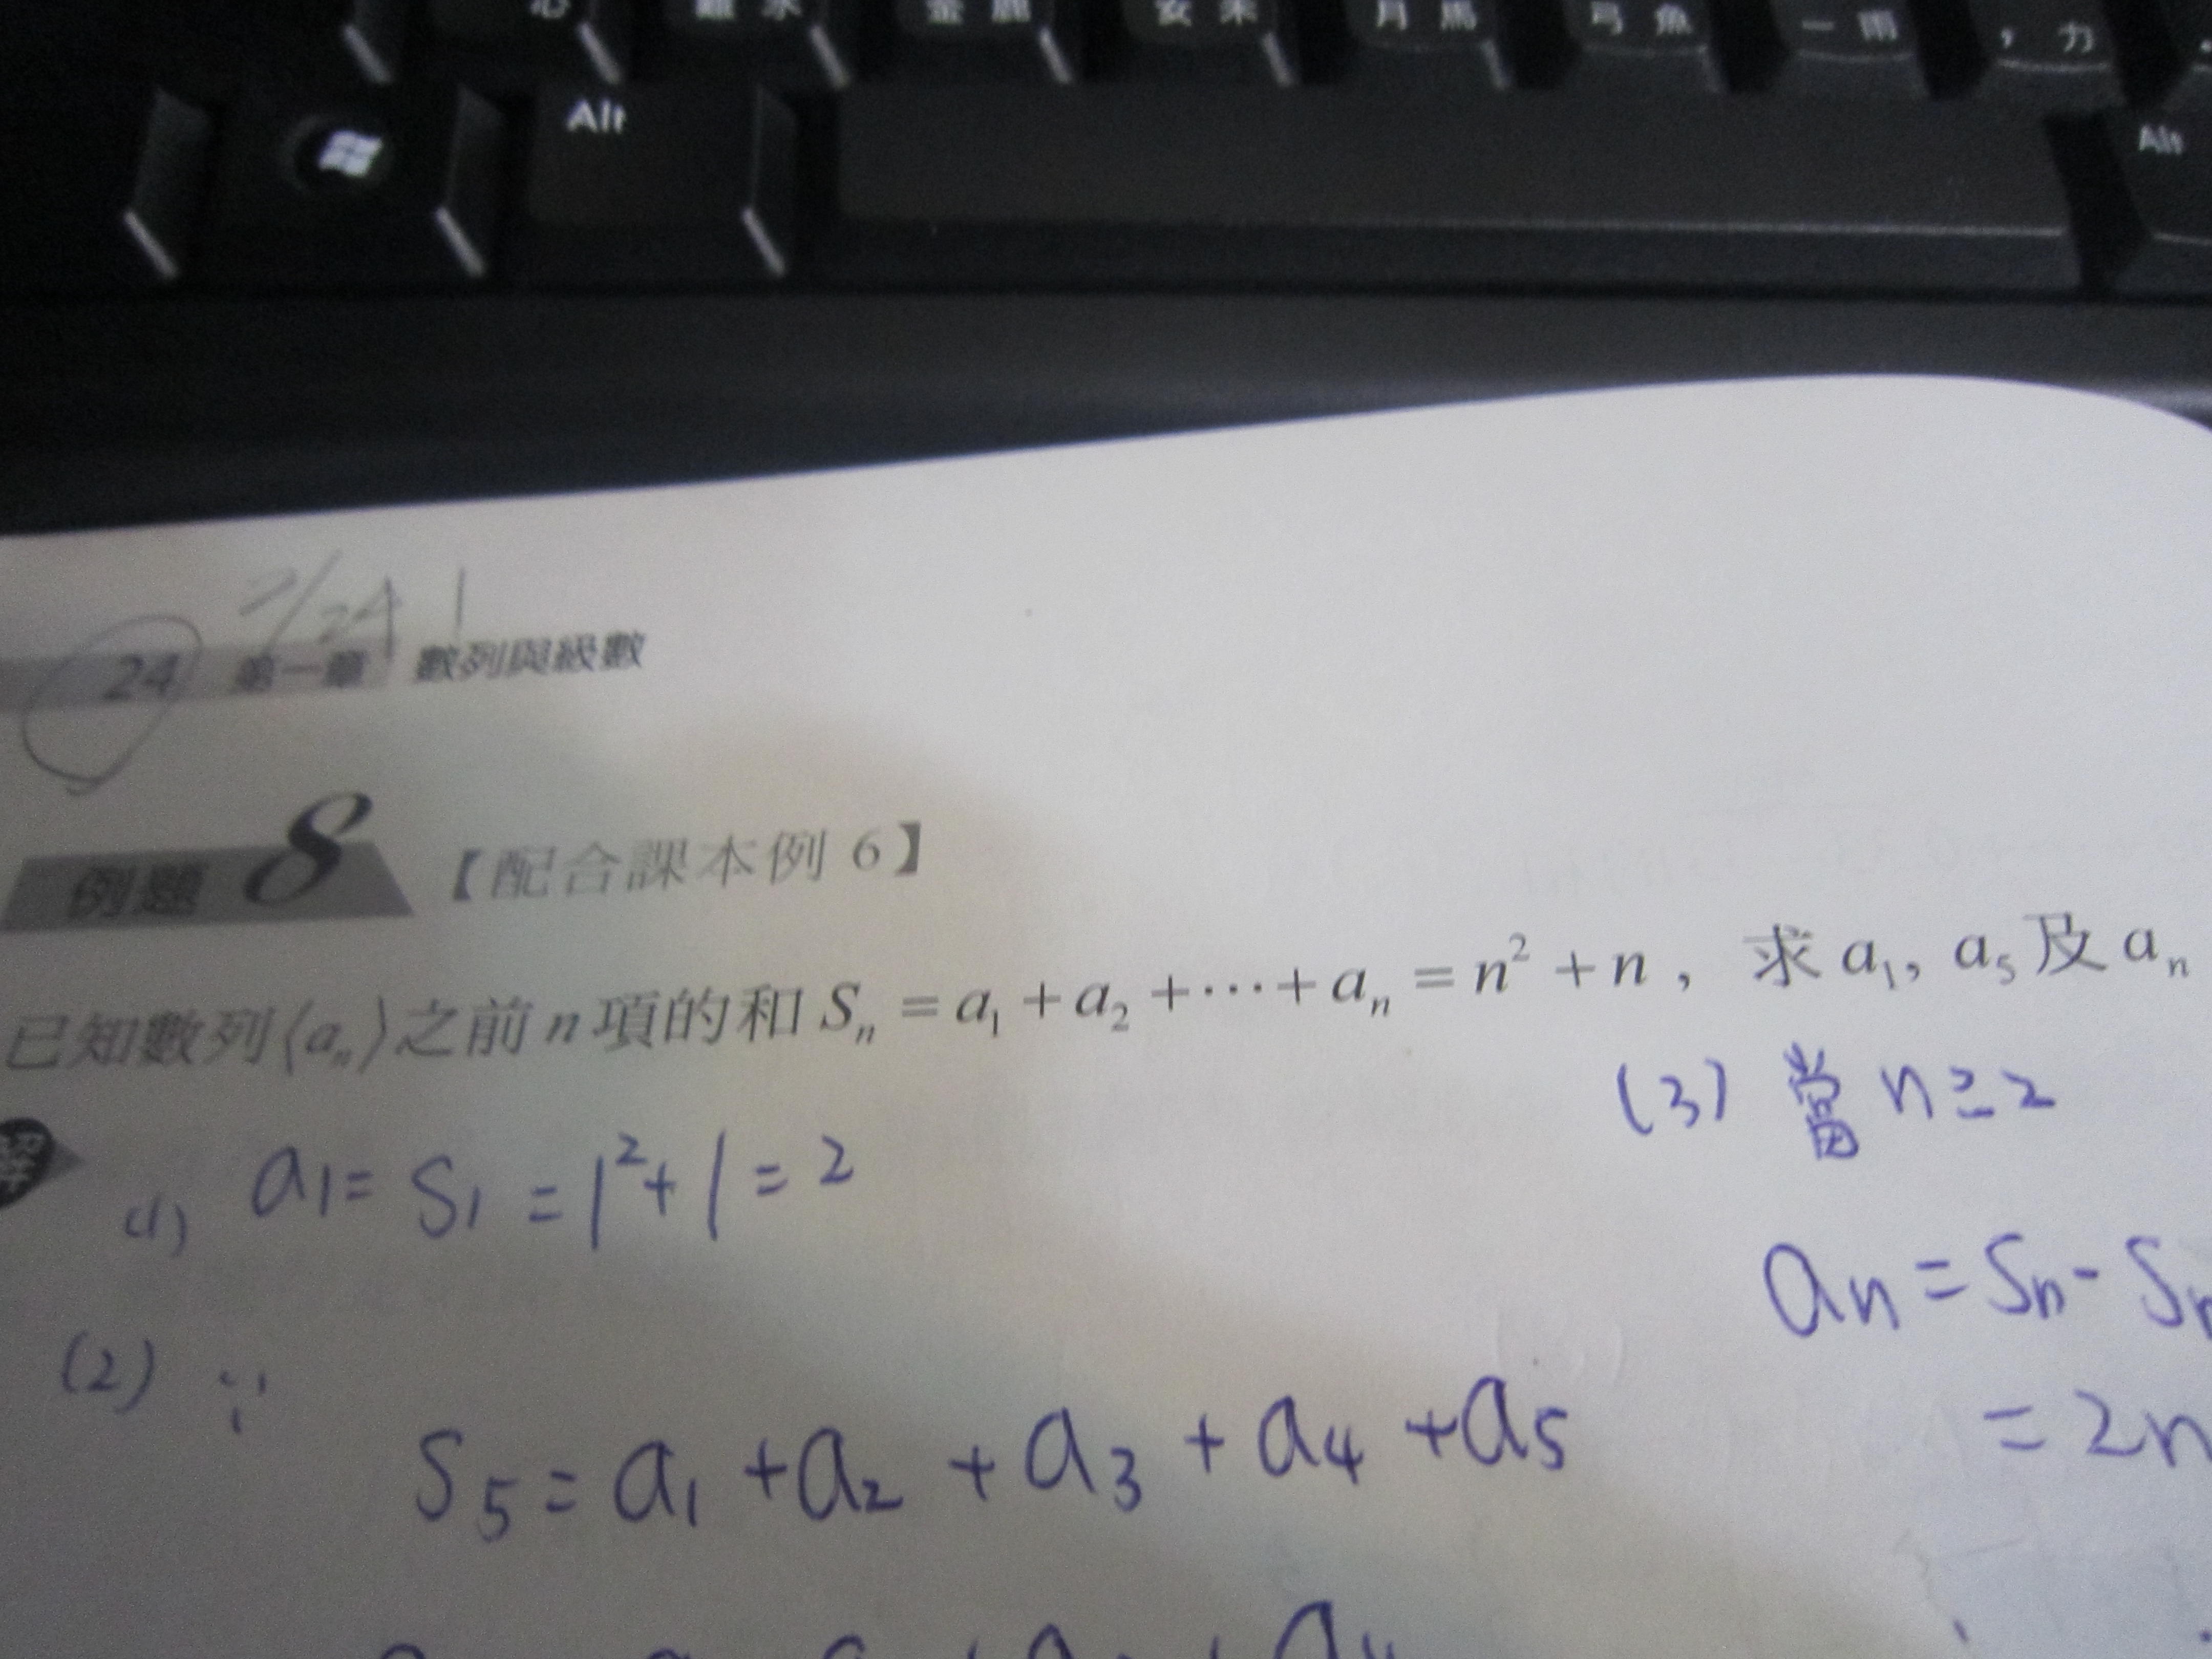 金
月 馬
弓 魚
一 雨
, 力
Alt
Alt
7/24
24 第一章 數列與級數
例題 8 【配合課本例 6】
已知數列⟨aₙ⟩之前 n 項的和 Sₙ = a₁ + a₂ + ⋯ + aₙ = n² + n , 求 a₁, a₅ 及 aₙ
解
(1) a₁ = S₁ = 1² + 1 = 2
(2) ∵
S₅ = a₁ + a₂ + a₃ + a₄ + a₅
(3) 當 n ≥ 2
aₙ = Sₙ - S
= 2n